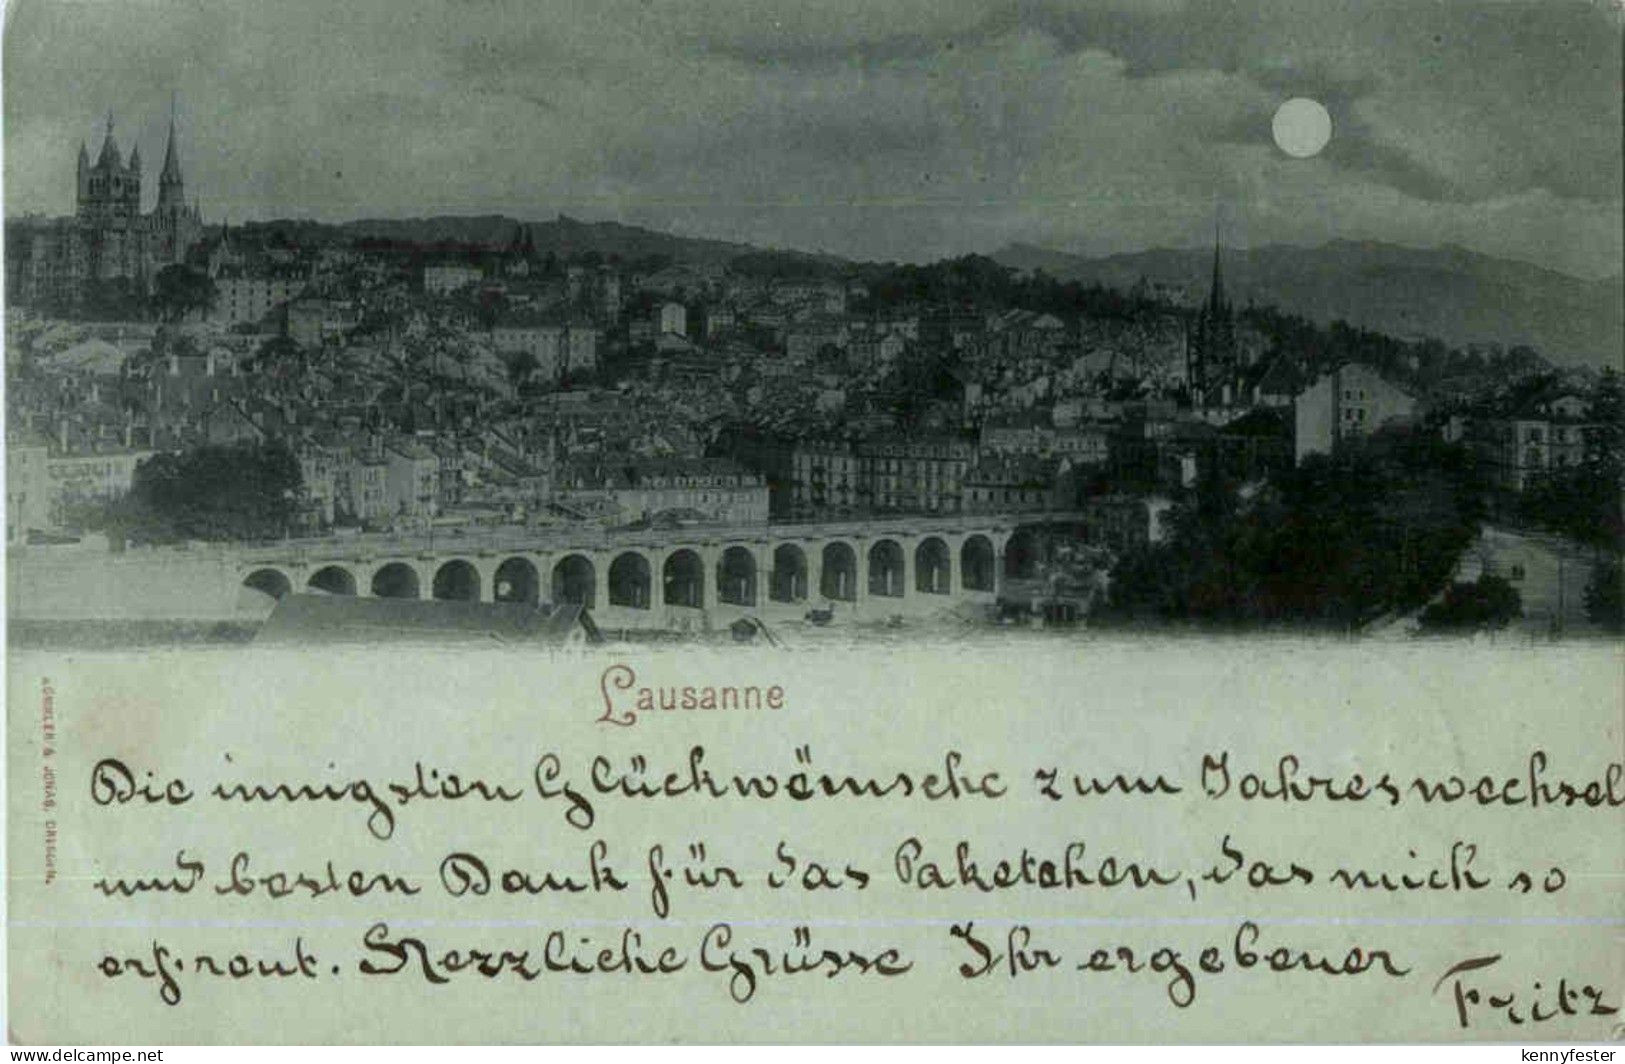 Lausanne
Die innigsten Glückwünsche zum Jahreswechsel
und besten Dank für das Paketchen, das mich so
erfreut. Herzliche Grüsse Ihr ergebener
Fritz
& JONAS, DRESDEN.
kennyfester